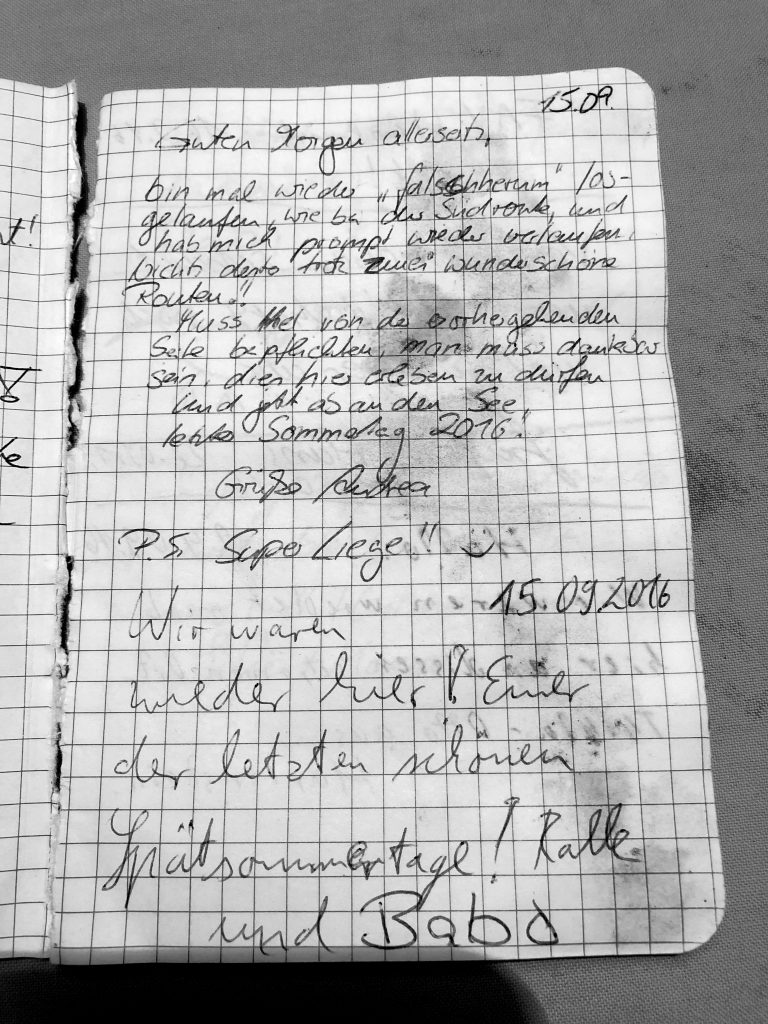 15.09.
Guten Morgen allerseits,
bin mal wieder „falschherum" los-
gelaufen, wie bei der Südroute, und
hab mich prompt wieder verlaufen.
Nichts desto trotz zwei wunderschöne
Routen!!
Muss von der vorhergehenden
Seite bepflichten, man muss dankbar
sein, dies hier erleben zu dürfen
Und jetzt ab an den See,
letzter Sommertag 2016!
Grüße Andrea
P.S. Super Liege!!
15.09.2016
Wir waren
wieder hier! Einer
der letzten schönen
Spätsommertage! Kalle
und Babo